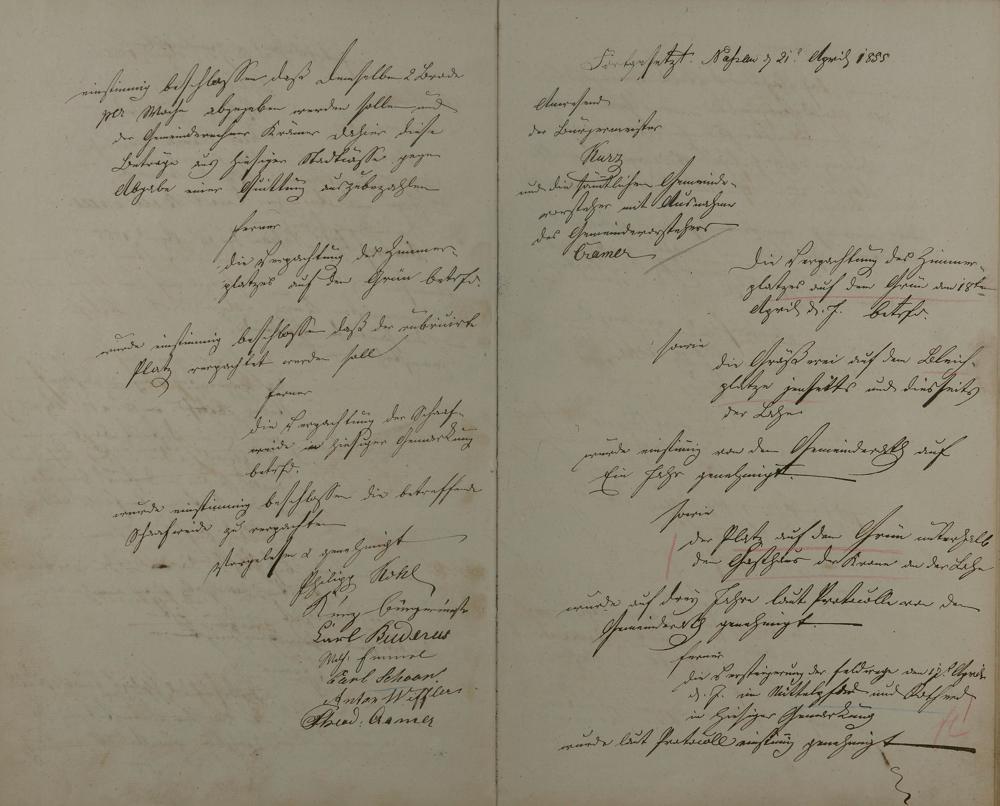 einstimmig beschlossen daß demselben 2 Brode
per Woche abgegeben werden sollen und
der Gemeinderechner Krämer dahier diese
Beträge aus hiesiger Stadtkasse gegen
Abgabe einer Quittung auszubezahlen
ferner
die Verpachtung des Zimmer-
platzes auf dem Grün betrfd.
wurde einstimmig beschlossen daß der
Platz verpachtet werden soll
ferner
die Verpachtung der Schaaf-
weide in hiesiger Gemarkung
betrfd.
wurde einstimmig beschlossen die betreffende
Schaafweide zu verpachten
Vorgelesen & genehmigt
Philipp Kohl
Kurz Bürgermeister
Carl Buderus
Emmel
Carl Schoan.
Anton
Theod: Cramer
Fortgesetzt. 21. April 1855
Anwesend
der Bürgermeister
Kurz
und die sämtlichen Gemeinde-
vorsteher mit Ausnahme
des Gemeindevorstehers
Cramer
Die Verpachtung des Zimmer-
platzes auf dem Grün am 18ten
April d. J. betrfd.
sowie
die Gräserei auf dem Bleich-
platze jenseits und diesseits
der Lahn
wurde einstimig von dem Gemeinderath auf
Ein Jahr genehmigt.
sowie
der Platz auf dem Grün unterhalb
dem Gasthaus der Krone an der Lahn
wurde auf drey Jahre laut Protocolle von dem
Gemeinderath genehmigt.
ferner
die Versteigerung der Feldwege am 17t April
d. J. im und
in hiesiger Gemarkung
wurde laut Protocoll einstimig genehmigt